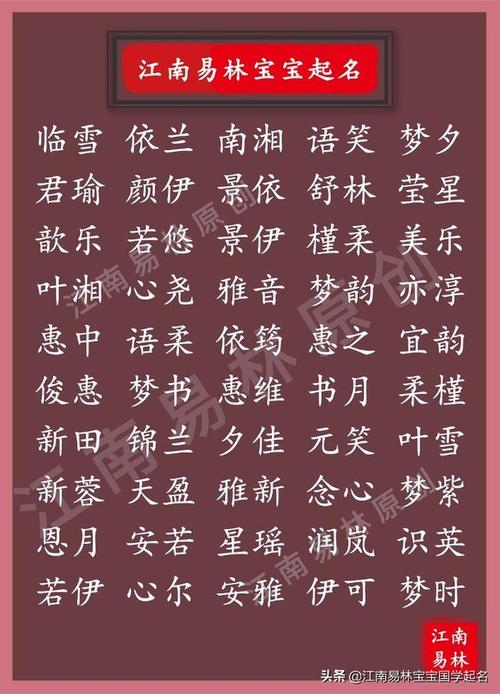 江南易林宝宝起名
临雪 依兰 南湘 语笑 梦夕
君瑜 颜伊 景依 舒林 莹星
歆乐 若悠 景伊 槿柔 美乐
叶湘 心尧 雅音 梦韵 亦淳
惠中 语柔 依筠 惠之 宜韵
俊惠 梦书 惠维 书月 柔槿
新田 锦兰 夕佳 元笑 叶雪
新蓉 天盈 雅新 念心 梦紫
恩月 安若 星瑶 润岚 识英
若伊 心尔 安雅 伊可 梦时
江南易林原创
江南易林原创
江南易林原创
江南
易林
头条 @江南易林宝宝国学起名